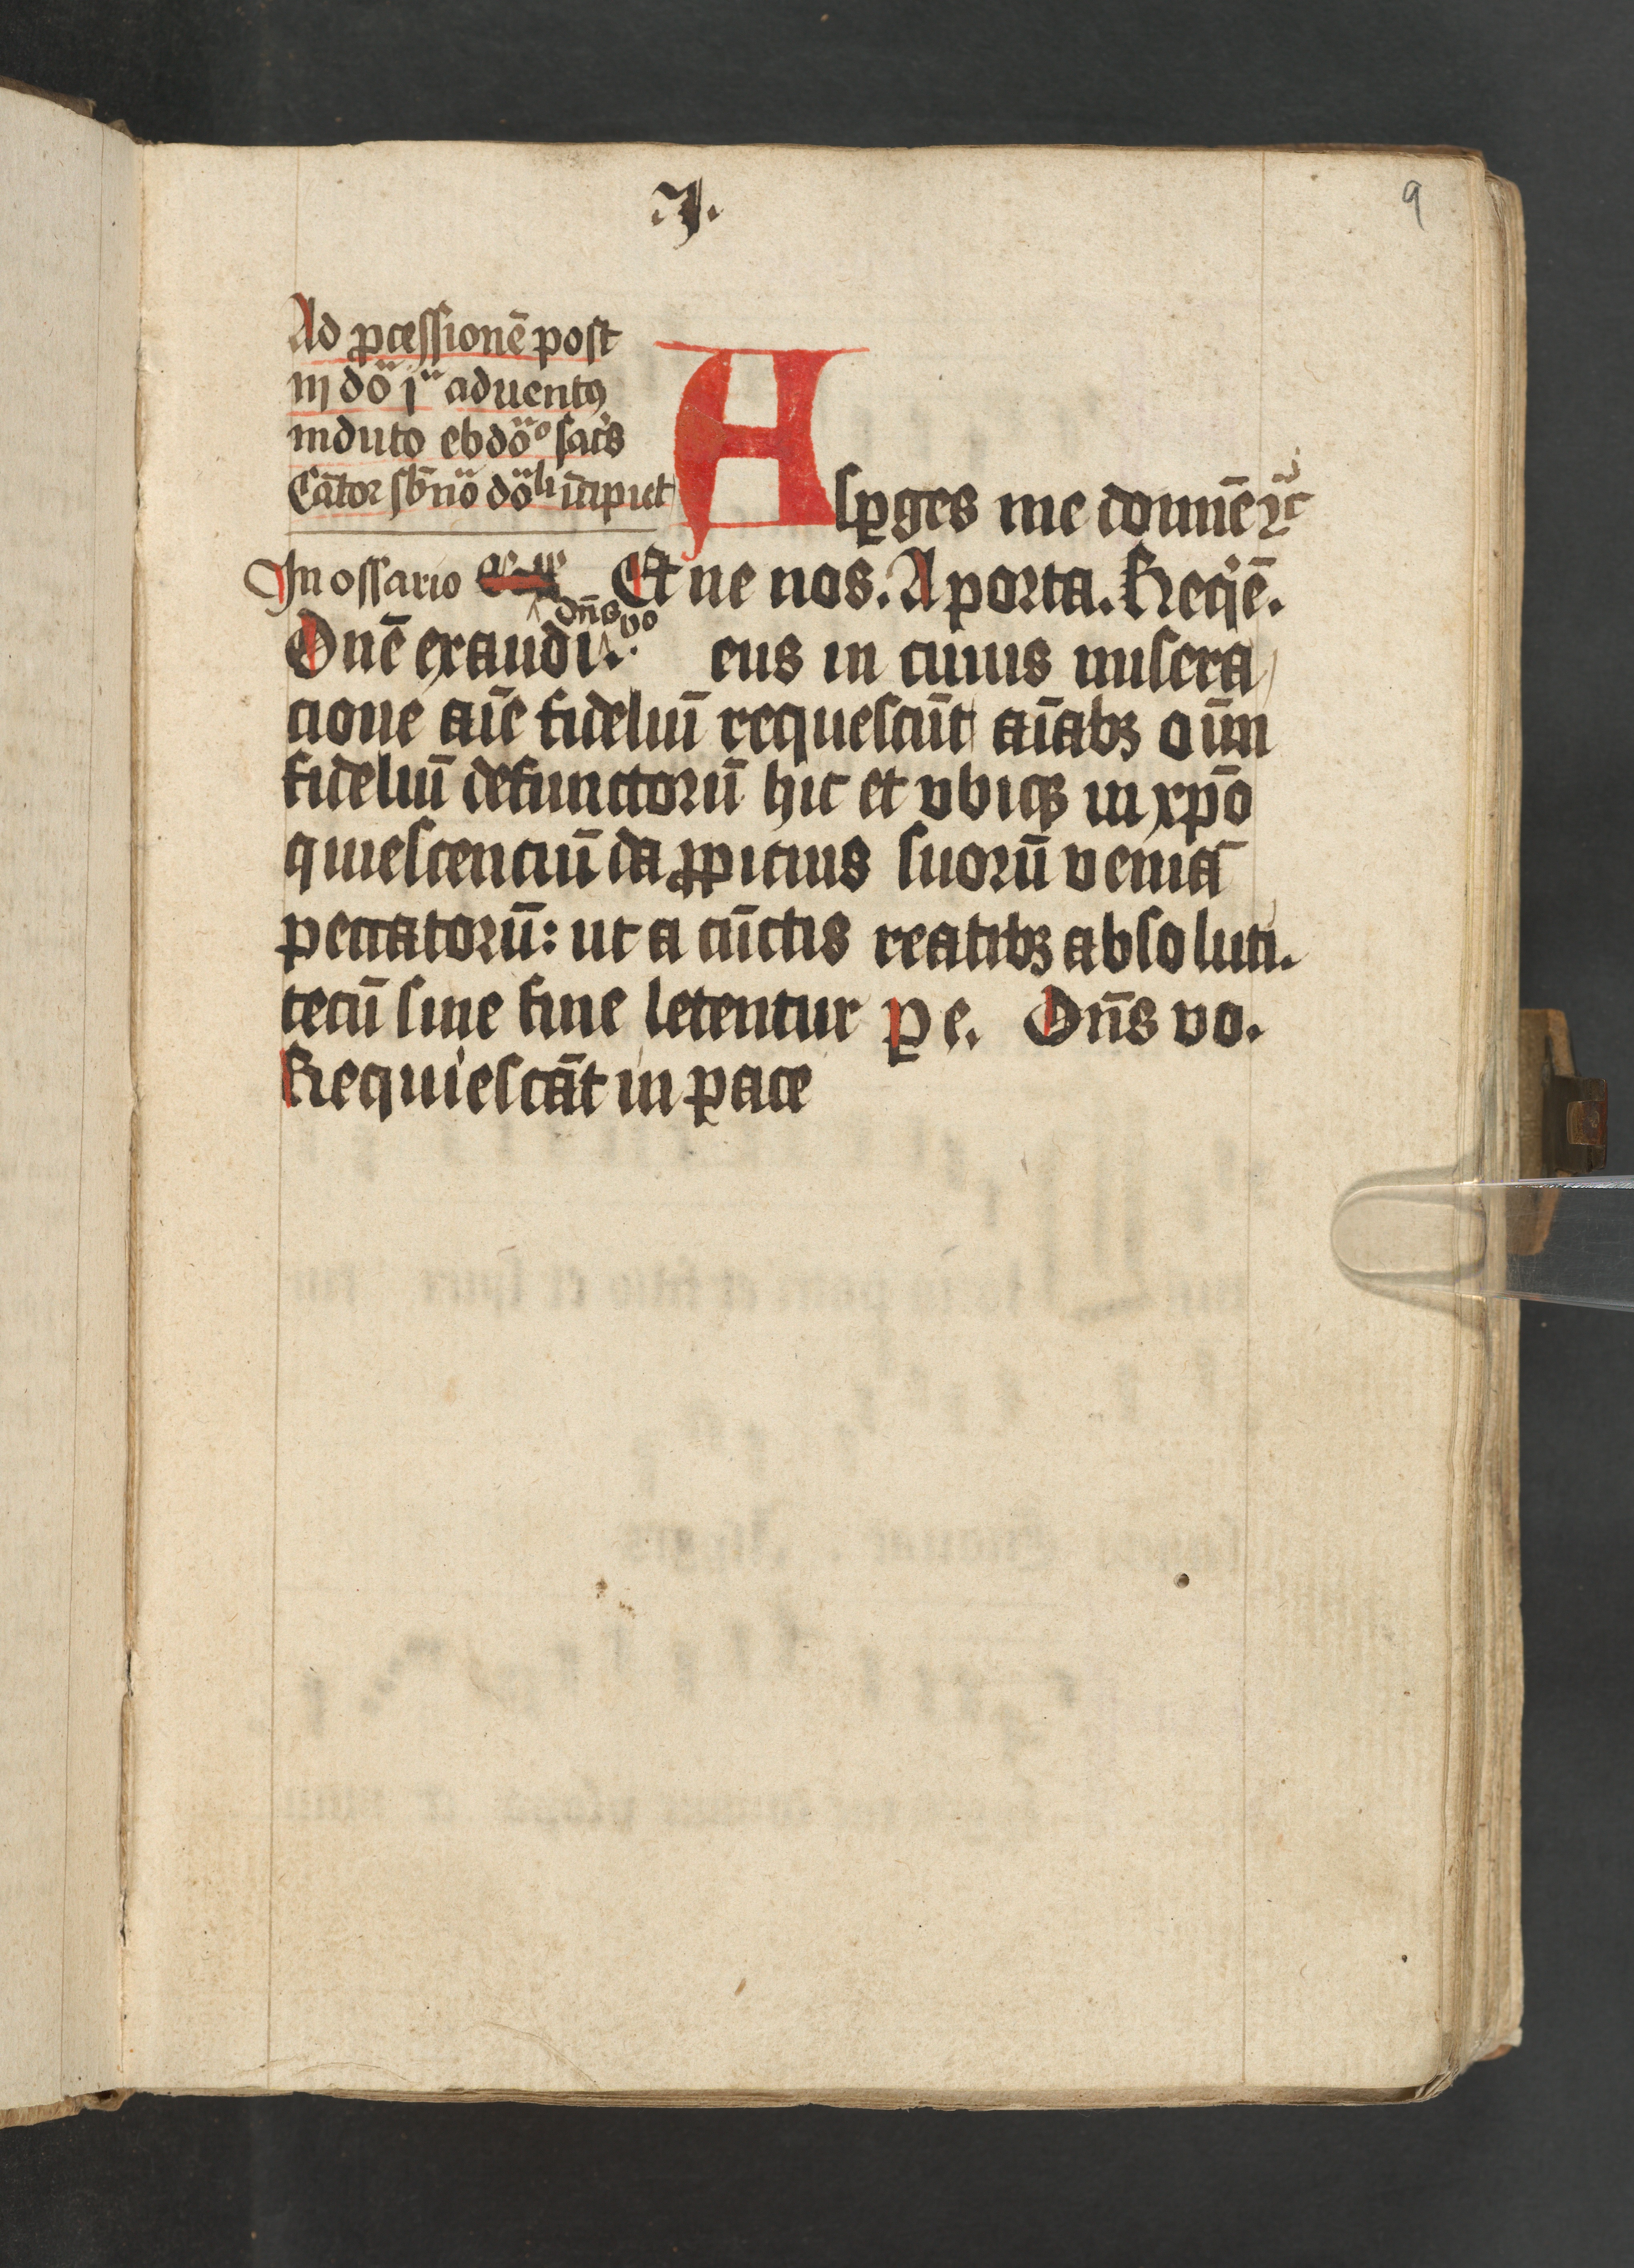 .I.
9
Ad ꝓcessionē post
iij do i aduentꝰ
induto ebdoᵒ sacͥs
Cātor sbͥno doͣli īcipiet
Aspges me domiē ⁊c
In ossario Et ne nos. A porta. Reqiē.
dn̄s vo
Dn̄e exaudi. eus in cuius misera
cione aīe fideliū requiescūt aīabꝫ oīm
fideliū defunctorū hic et vbicqꝫ in xp̄o
quiescenciū da ꝓpicius suorū veniā
peccatorū: ut a cūctis reatibꝫ absoluti.
tecū sine fine letentur ꝑ e. Dn̄s vo.
Requiescāt in pace